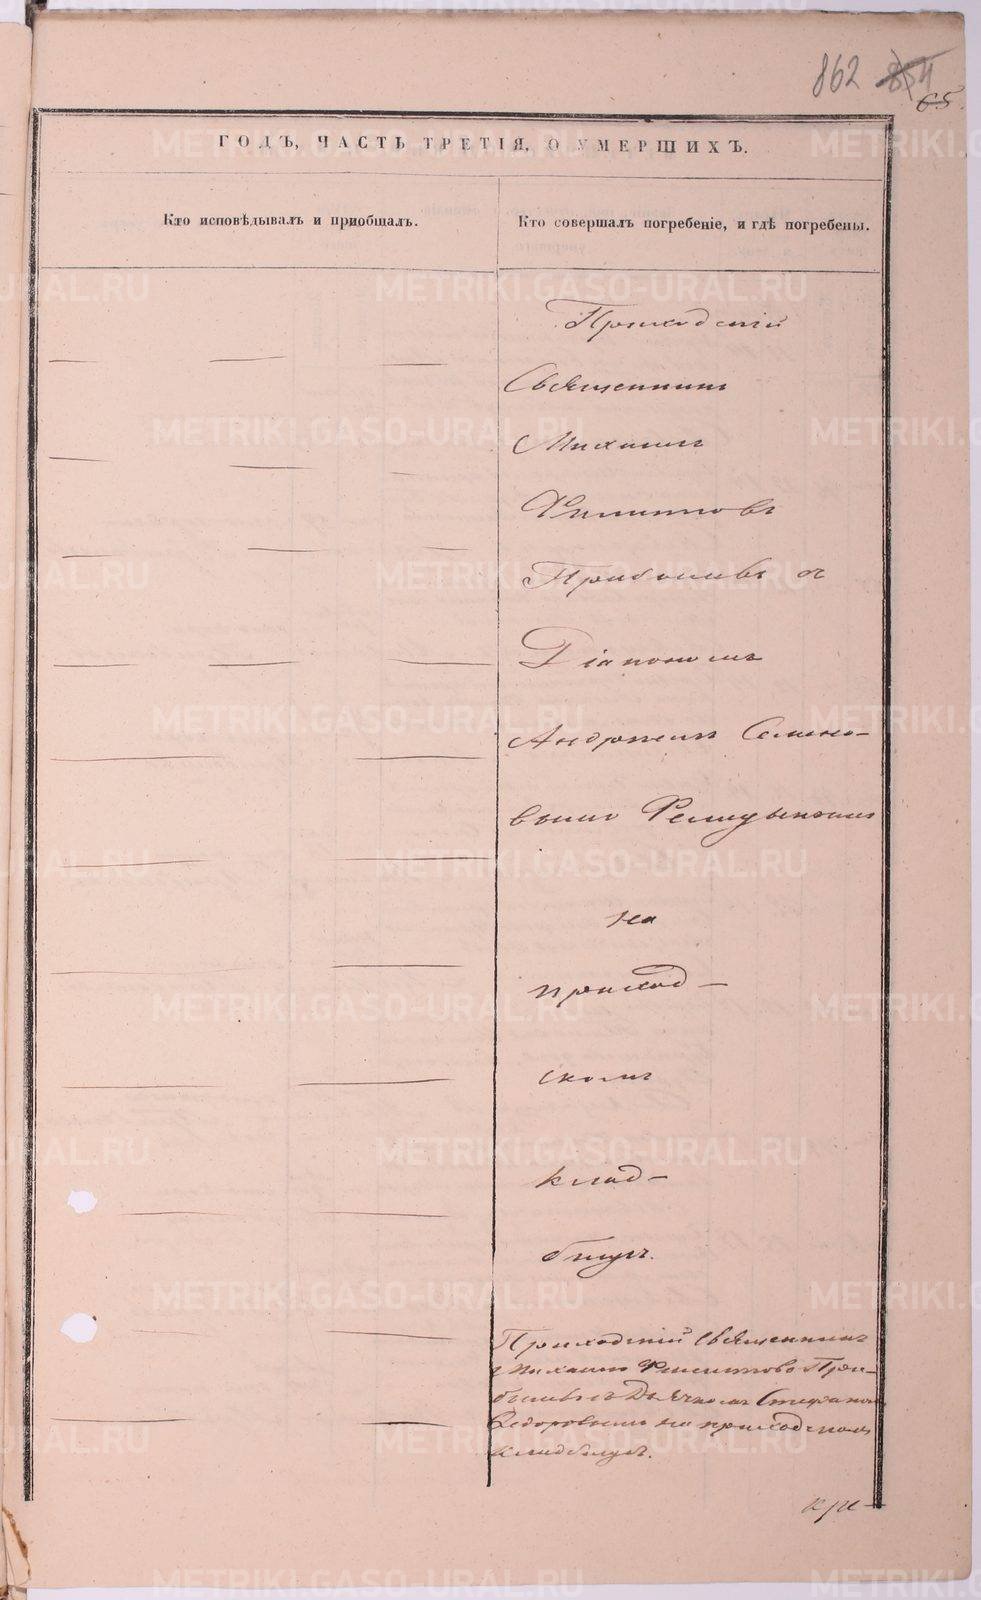 862 854
65.
ГОДЪ, ЧАСТЬ ТРЕТІЯ, О УМЕРШИХЪ.
Кто исповѣдывалъ и пріобщалъ.
Кто совершалъ погребеніе, и гдѣ погребены.
Приходскій
Священникъ
Михаилъ
Филитовъ
съ
Діакономъ
Андреемъ Семено-
вымъ
на
приход-
скомъ
клад-
бищѣ.
Приходскій Священникъ
Михаилъ
Дьячкомъ Стефаномъ
Ѳедоровымъ на приходскомъ
кладбищѣ.
METRIKI.GASO-URAL.RU